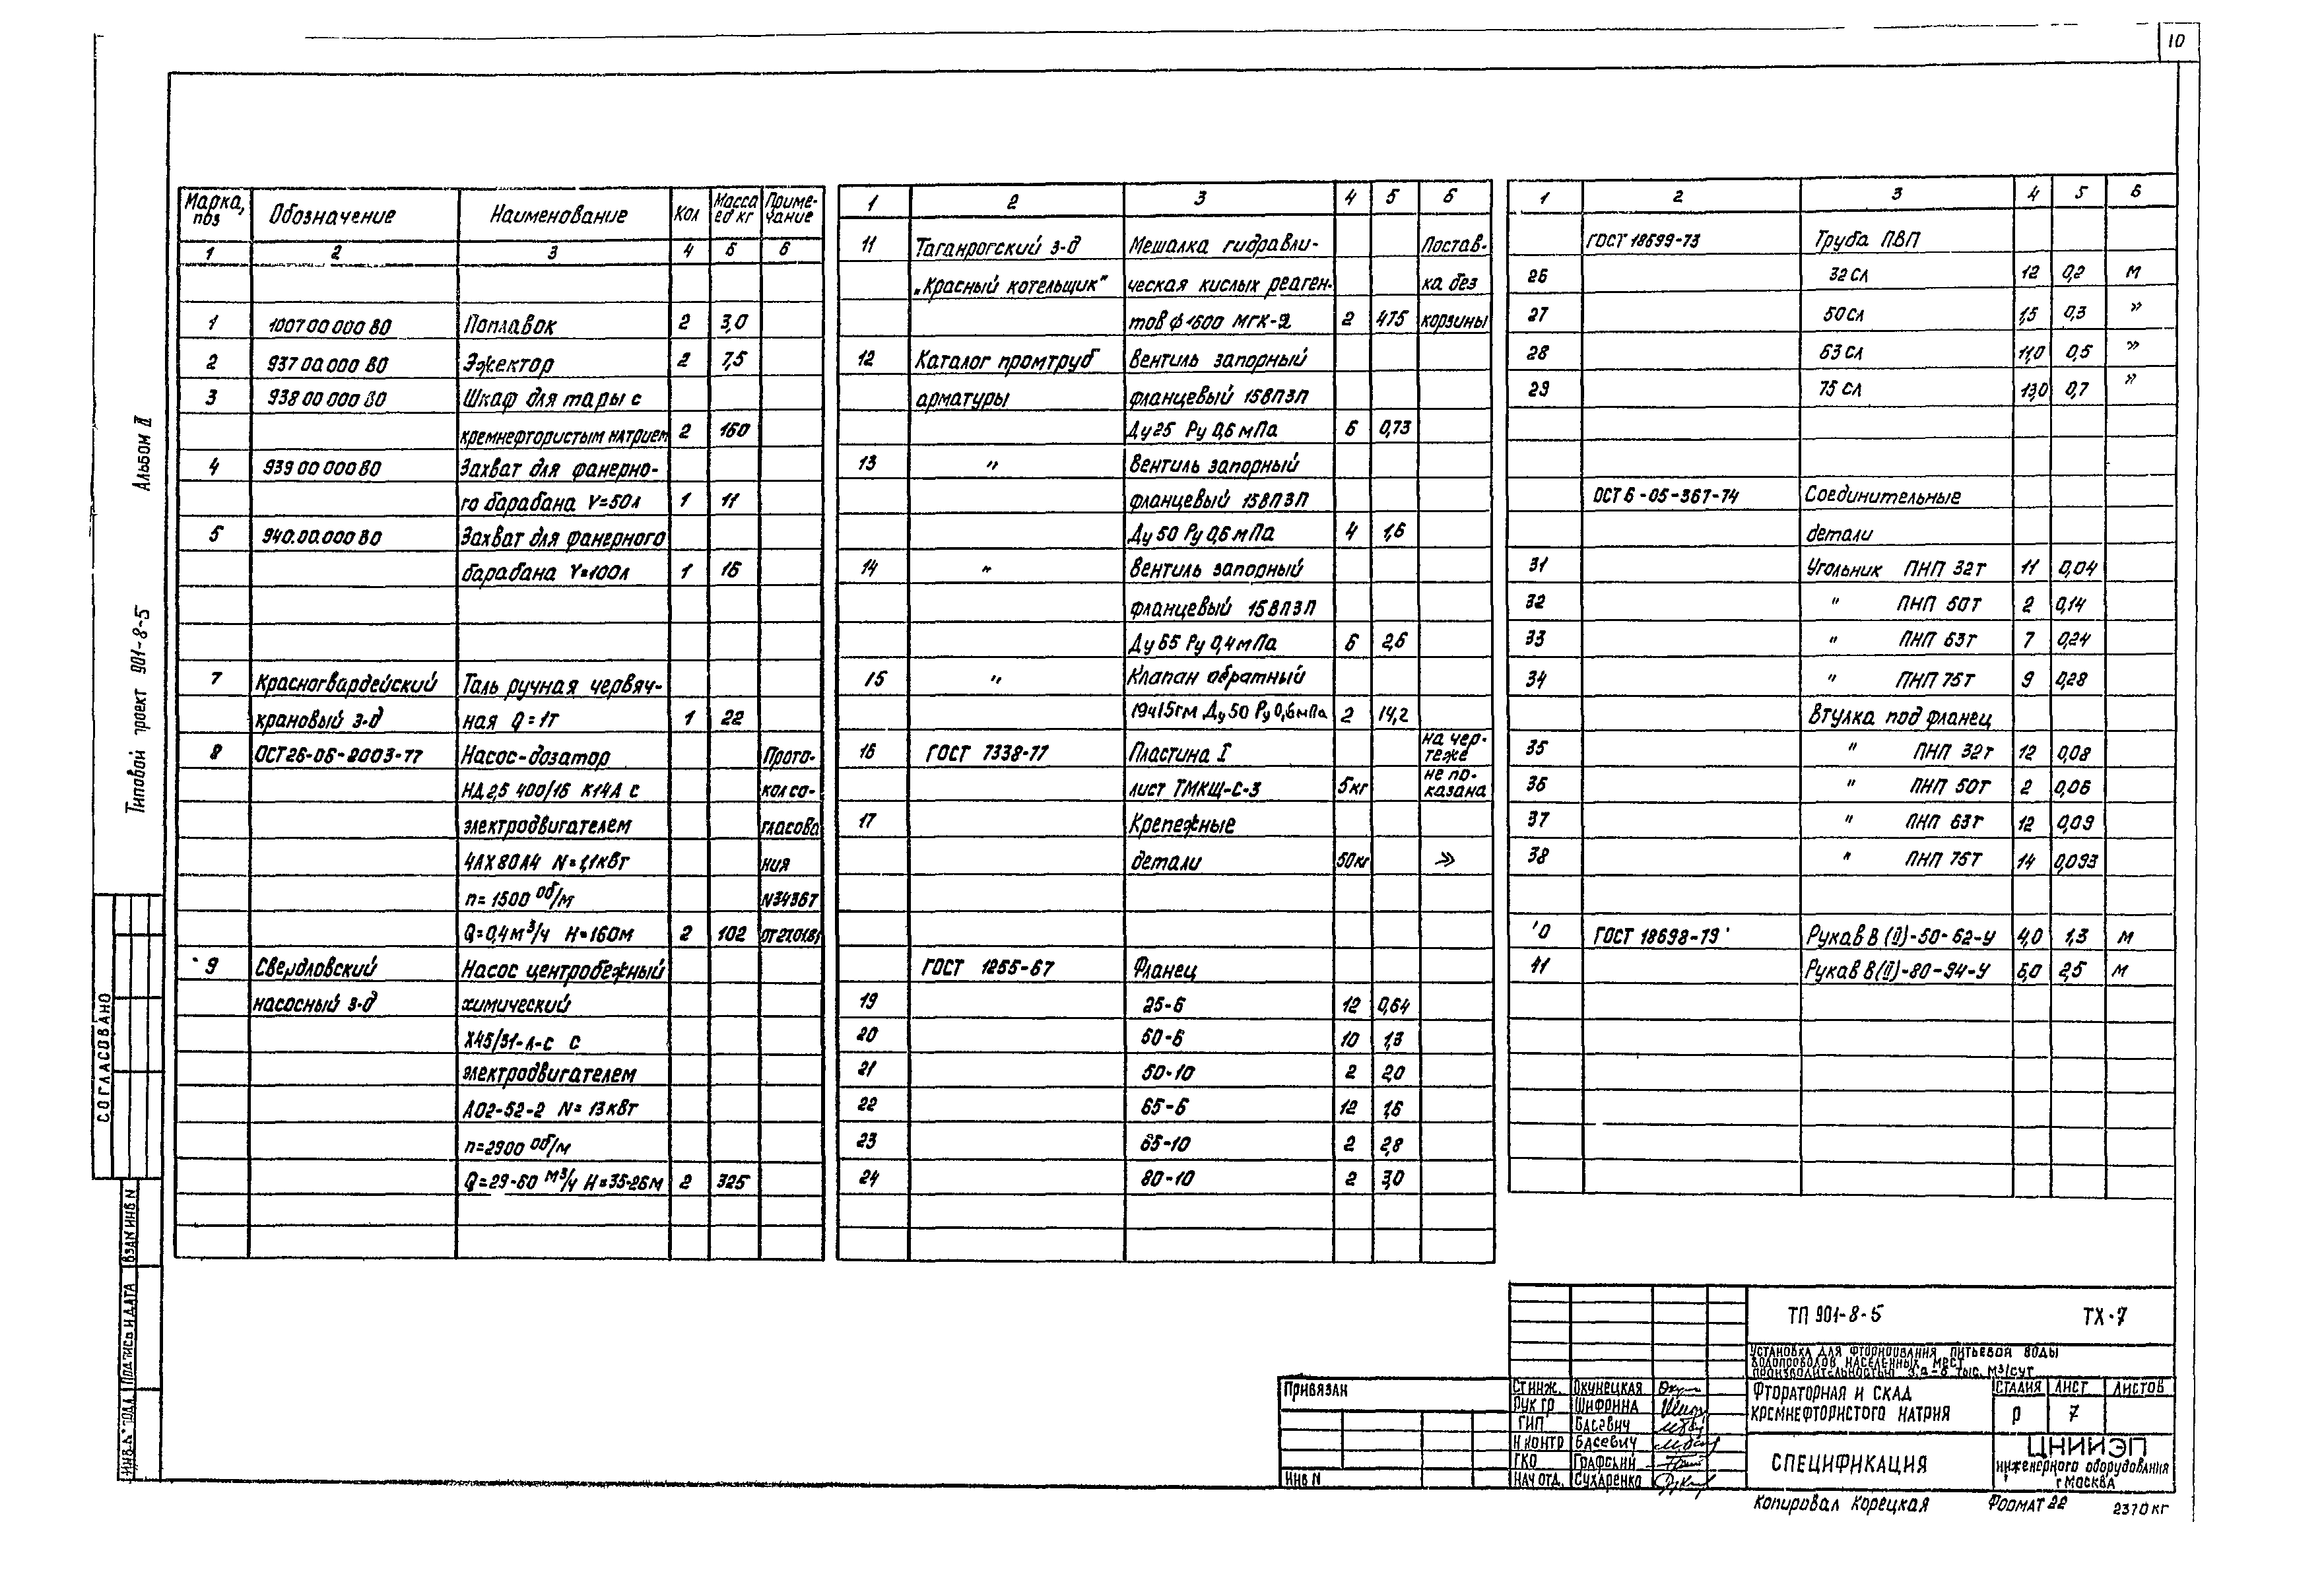 10
Альбом II
Типовой проект 901-8-5
СОГЛАСОВАНО
ВЗАМ ИНВ N
Подпись и дата
ИНВ N° подл.
Марка, поз Обозначение Наименование Кол Масса ед кг Примечание
1 2 3 4 5 6
1 1007 00 000 80 Поплавок 2 3,0
2 937 00.000 80 Эжектор 2 7,5
3 938 00 000 80 Шкаф для тары с
кремнефтористым натрием 2 160
4 939 00 000 80 Захват для фанерно-
го барабана V=50л 1 11
5 940.00.000 80 Захват для фанерного
барабана V=100л 1 16
7 Красногвардейский Таль ручная червяч-
крановый з-д ная Q=1т 1 22
8 ОСТ26-06-2003-77 Насос-дозатор Прото-
НД 2,5 400/16 К14А с кол со-
электродвигателем гласова
4АХ80А4 N=1,1кВт ния
n=1500 об/м N34367
Q=0,4м³/ч H=160м 2 102
9 Свердловский Насос центробежный
насосный з-д химический
Х45/31-Л-С с
электродвигателем
АО2-52-2 N=13кВт
n=2900 об/м
Q=29-60 м³/ч H=35-26м 2 325
1 2 3 4 5 6
11 Таганрогский з-д Мешалка гидравли- Постав-
„Красный котельщик" ческая кислых реаген- ка без
тов ф1600 МГК-2 2 475 корзины
12 Каталог промтруб Вентиль запорный
арматуры фланцевый 15вп3п
Ду25 Ру 0,6 мПа 6 0,73
13 " Вентиль запорный
фланцевый 15вп3п
Ду 50 Ру 0,6 мПа 4 1,6
14 " Вентиль запорный
фланцевый 15вп3п
Ду 65 Ру 0,4 мПа 6 2,6
15 " Клапан обратный
19ч15гм Ду50 Ру0,6мПа 2 14,2
16 ГОСТ 7338-77 Пластина I на чер-
теже
лист ТМКЩ-С-3 5кг не по-
казана
17 Крепежные
детали 50кг »
ГОСТ 1255-67 Фланец
19 25-6 12 0,64
20 50-6 10 1,3
21 50-10 2 2,0
22 65-6 12 1,6
23 65-10 2 2,8
24 80-10 2 3,0
1 2 3 4 5 6
ГОСТ 18599-73 Труба ПВП
26 32 СЛ 12 0,2 м
27 50 СЛ 1,5 0,3 »
28 63 СЛ 11,0 0,5 »
29 75 СЛ 13,0 0,7 »
ОСТ 6-05-367-74 Соединительные
детали
31 Угольник ПНП 32Т 11 0,04
32 " ПНП 50Т 2 0,14
33 " ПНП 63Т 7 0,24
34 " ПНП 75Т 9 0,28
Втулка под фланец
35 " ПНП 32Т 12 0,08
36 " ПНП 50Т 2 0,06
37 " ПНП 63Т 12 0,09
38 " ПНП 75Т 14 0,093
'0 ГОСТ 18698-79 Рукав В (II)-50-62-У 4,0 1,3 м
41 Рукав В(II)-80-94-У 6,0 2,5 м
ТП 901-8-5 ТХ-7
Установка для фторирования питьевой воды
водопроводов населенных мест
производительностью 3,2-8 тыс. м³/сут
Фтораторная и скад
кремнефтористого натрия
Стадия Лист Листов
Р 7
Спецификация
ЦНИИЭП
инженерного оборудования
г Москва
Привязан
Инв N
Ст инж. Окунецкая
Рук гр Шифрина
ГИП Басевич
Н контр Басевич
ГКО Графский
Нач отд. Сухаренко
Копировал Корецкая Формат 22 2370 кг